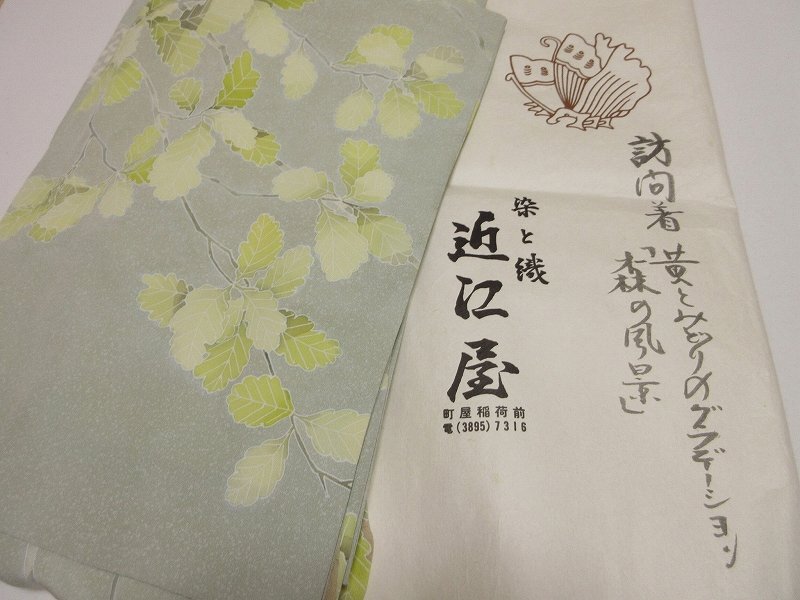 訪問着
黄とみどりのグラデーション
「森の風景」
染と織
近江屋
町屋稲荷前
電(3895)7316